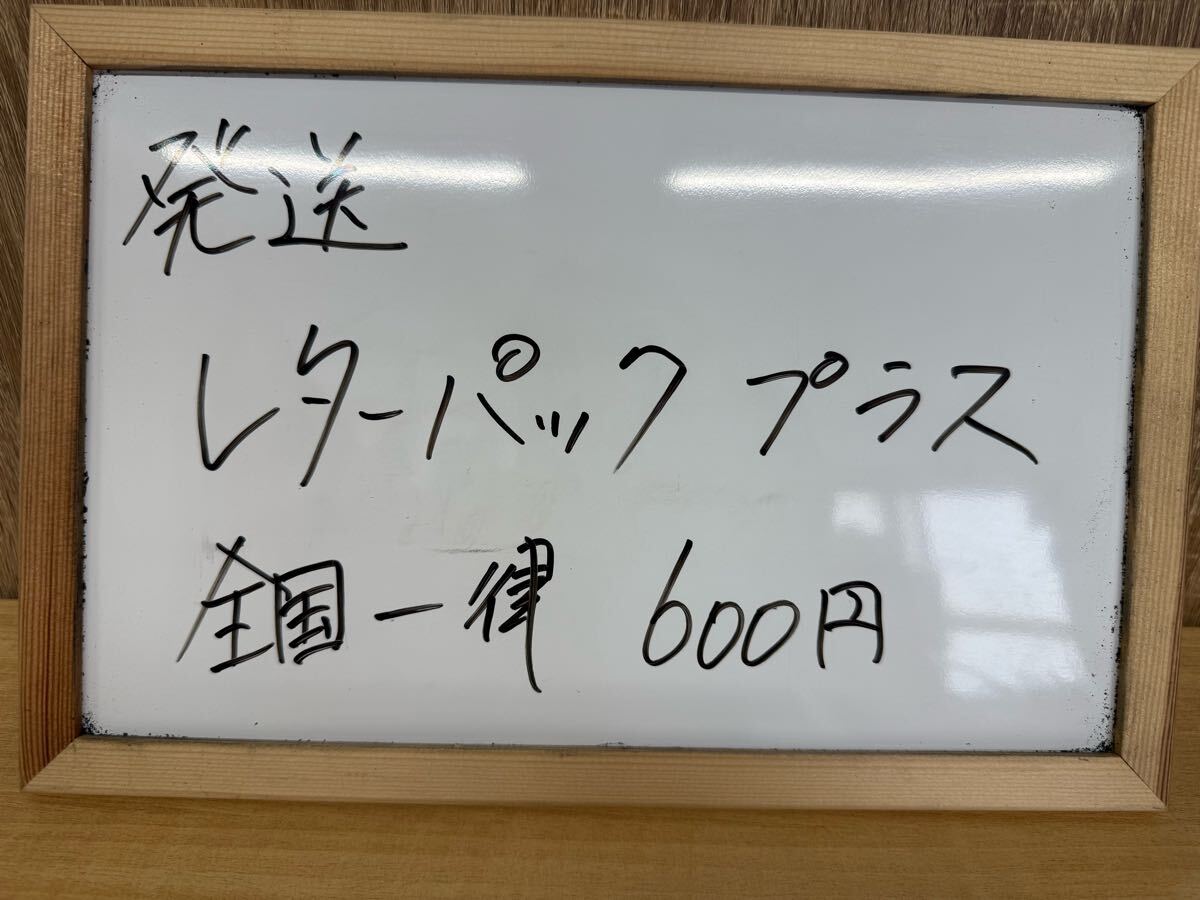 発送
レターパック プラス
全国一律 600円